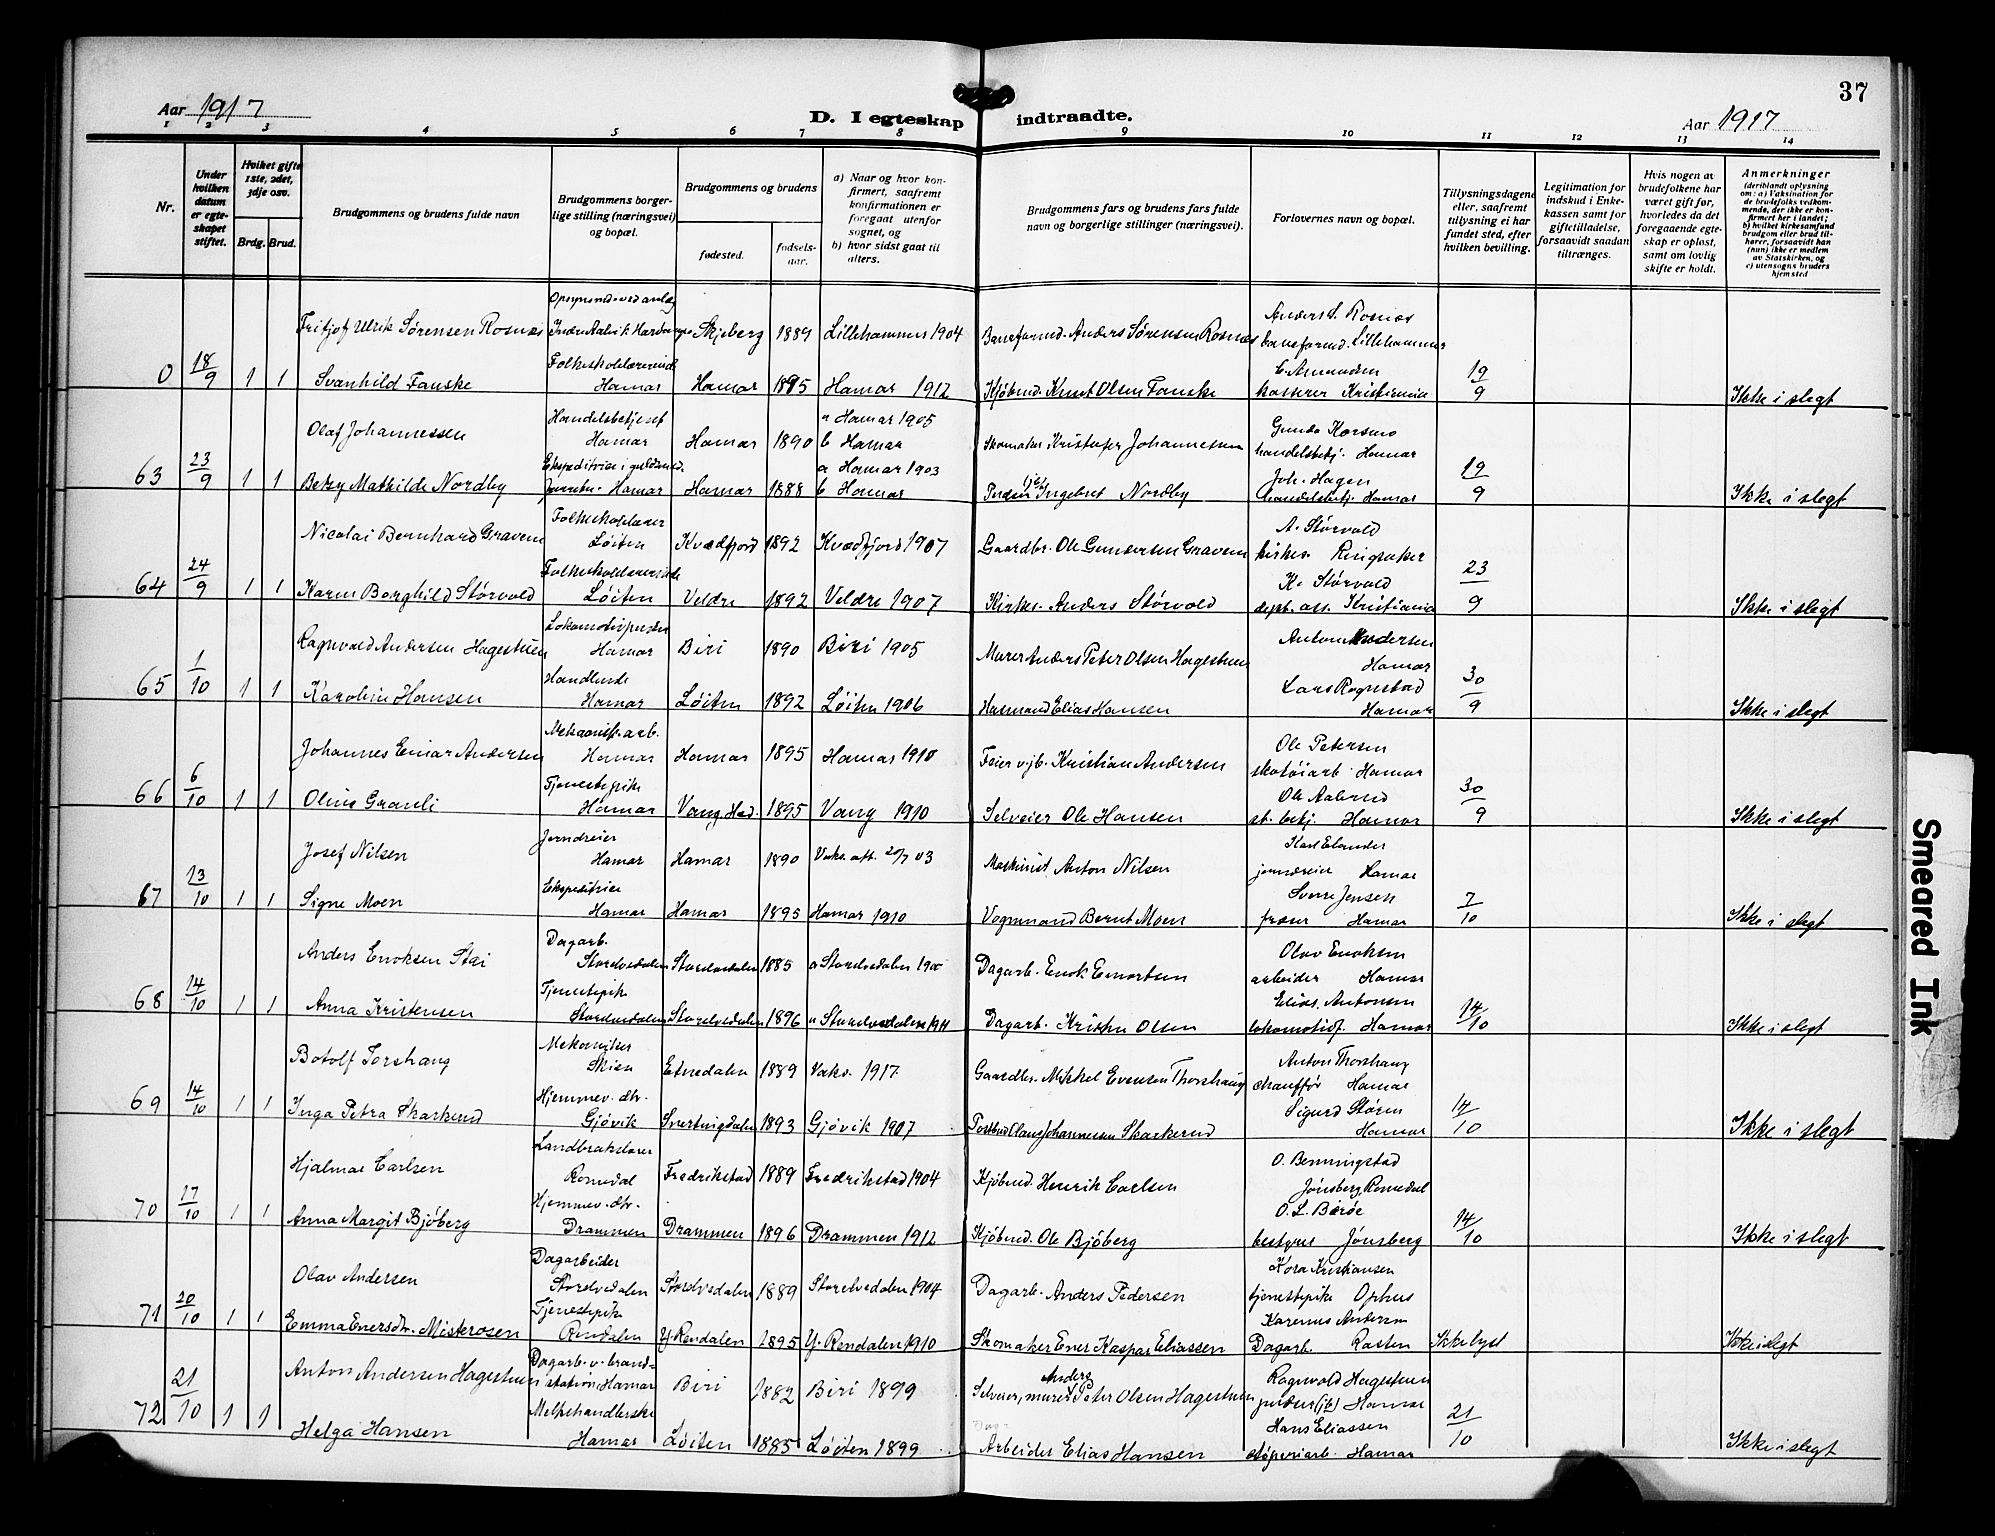 37
Aar 1917
D. I egteskap indtraadte.
Aar 1917
1 2 3 4 5 6 7 8 9 10 11 12 13 14
Nr.
Under hvilken datum er egteskapet stiftet.
Hvilket gifte 1ste, 2det, 3dje osv.
Brdg. Brud.
Brudgommens og brudens fulde navn
Brudgommens borgerlige stilling (næringsvei) og bopæl.
Brudgommens og brudens
fødested.
fødselsaar.
a) Naar og hvor konfirmert, saafremt konfirmationen er foregaat utenfor sognet, og
b) hvor sidst gaat til alters.
Brudgommens fars og brudens fars fulde navn og borgerlige stillinger (næringsvei).
Forlovernes navn og bopæl.
Tillysningsdagene eller, saafremt tillysning ei har fundet sted, efter hvilken bevilling.
Legitimation for indskud i Enkekassen samt for giftetilladelse, forsaavidt saadan tiltrænges.
Hvis nogen av brudefolkene har været gift før, hvorledes da det foregaaende egteskap er opløst, samt om lovlig skifte er holdt.
Anmerkninger (deriblandt oplysning om: a) Vaksination for de brudefolks vedkommende, der ikke er konfirmert her i landet; b) hvilket kirkesamfund brudgom eller brud tilhører, forsaavidt han (hun) ikke er medlem av Statskirken, og c) utensogns bruders hjemsted
Fritjof Ulrik Sørensen Rosnæs Skjeberg 1889 Lillehammer 1904 Baneformd. Anders Sørensen Rosnæs Anders S. Rosnæs baneformd. Lillehammer
0 18/9 1 1 Svanhild Fauske Folkeskolelærerinde Hamar Hamar 1895 Hamar 1912 Kjøbmd. Knut Olsen Fauske kasserer Kristiania 19/9 Ikke i slegt
Olaf Johannessen Handelsbetjent Hamar Hamar 1890 a Hamar 1905 b Hamar Skomaker Kristofer Johannessen Gunda Korsmo handelsbetj. Hamar
63 23/9 1 1 Betzy Mathilde Nordby Hamar Hamar 1888 a Hamar 1903 b Hamar Ingebret Nordby Joh. Hagen handelsbetj. Hamar 19/9 Ikke i slegt
Nicolai Bernhard Gravem Folkeskolelærer Løiten Kvædfjord 1892 Kvædfjord 1907 Gaardbr. Ole Gundersen Gravem A. Størvold kirkes. Ringsaker
64 24/9 1 1 Karen Borghild Størvold Folkeskolelærerinde Løiten Veldre 1892 Veldre 1907 Kirkes. Anders Størvold K. Størvold dept. ass. Kristiania 23/9 Ikke i slegt
Ragnvald Andersen Hagestuen Lokomotivpudser Hamar Biri 1890 Biri 1905 Murer Anders Peter Olsen Hagestuen Anton Andersen Hamar
65 1/10 1 1 Karoline Hansen Handlende Hamar Løiten 1892 Løiten 1906 Husmand Elias Hansen Lars Rognstad Hamar 30/9 Ikke i slegt
Johannes Einar Andersen Mekanisk arb. Hamar Hamar 1895 Hamar 1910 Feier v. jb. Kristian Andersen Ole Petersen skotøiarb. Hamar
66 6/10 1 1 Oline Granli Tjenestepike Hamar Vang Hed. 1895 Vang 1910 Selveier Ole Hansen Ole Aalerud st. betj. Hamar 30/9 Ikke i slegt
Josef Nilsen Jerndreier Hamar Hamar 1890 Vaks. att. 20/7 03 Maskinist Anton Nilsen Karl Elander jerndreier Hamar
67 13/10 1 1 Signe Moen Ekspeditrice Hamar Hamar 1895 Hamar 1910 Vognmand Bernt Moen Sverre Jensen fræser Hamar 7/10 Ikke i slegt
Anders Enoksen Stai Dagarb. Storelvedalen Storelvedalen 1885 a Storelvedalen 1900 Dagarb. Enok Emortsen Olav Enoksen arbeider Hamar
68 14/10 1 1 Anna Kristensen Tjenestepik Storelvedalen Storelvedalen 1896 a Storelvedalen 1911 Dagarb. Kristen Olsen Elias Antonsen lokomotivf. Hamar 14/10 Ikke i slegt
Botolf Torshaug Mekaniker Skien Etnedalen 1889 Vaks. 1917 Gaardbr. Mikkel Evensen Thorshaug Anton Thorshaug chauffør Hamar
69 14/10 1 1 Inga Petra Skarkerud Hjemmev. dtr. Gjøvik Snertingdalen 1893 Gjøvik 1907 Postbud Olaus Johannessen Skarkerud Sigurd Støren Hamar 14/10 Ikke i slegt
Hjalmar Carlsen Landbrukslærer Romedal Fredrikstad 1889 Fredrikstad 1904 Kjøbmd. Henrik Carlsen O. Benningstad Jønsberg, Romedal
70 17/10 1 1 Anna Margit Bjøberg Hjemmev. dtr. Drammen Drammen 1896 Drammen 1912 Kjøbmd. Ole Bjøberg O. L. Børøe bestyrer Jønsberg 14/10 Ikke i slegt
Olav Andersen Dagarbeider Storelvedalen Storelvedalen 1889 Storelvedalen 1904 Dagarb. Anders Pedersen Kora Kristiansen tjenestepike Ophus
71 20/10 1 1 Emma Enersdtr. Misterosen Tjenestepik Rendalen Y. Rendalen 1895 Y. Rendalen 1910 Skomaker Ener Kaspar Eliassen Karenus Andersen Dagarb. Rasten Ikke lyst Ikke i slegt
Anton Andersen Hagestuen Dagarb. v. brandstation, Hamar Biri 1882 Biri 1899 Selveier, murer Anders Peter Olsen Hagestuen Ragnvald Hagestuen pudser (jb) Hamar
72 21/10 1 1 Helga Hansen Melkehandlerske Hamar Løiten 1885 Løiten 1899 Arbeider Elias Hansen Hans Eliassen støperiarb. Hamar 21/10 Ikke i slegt
Smeared Ink